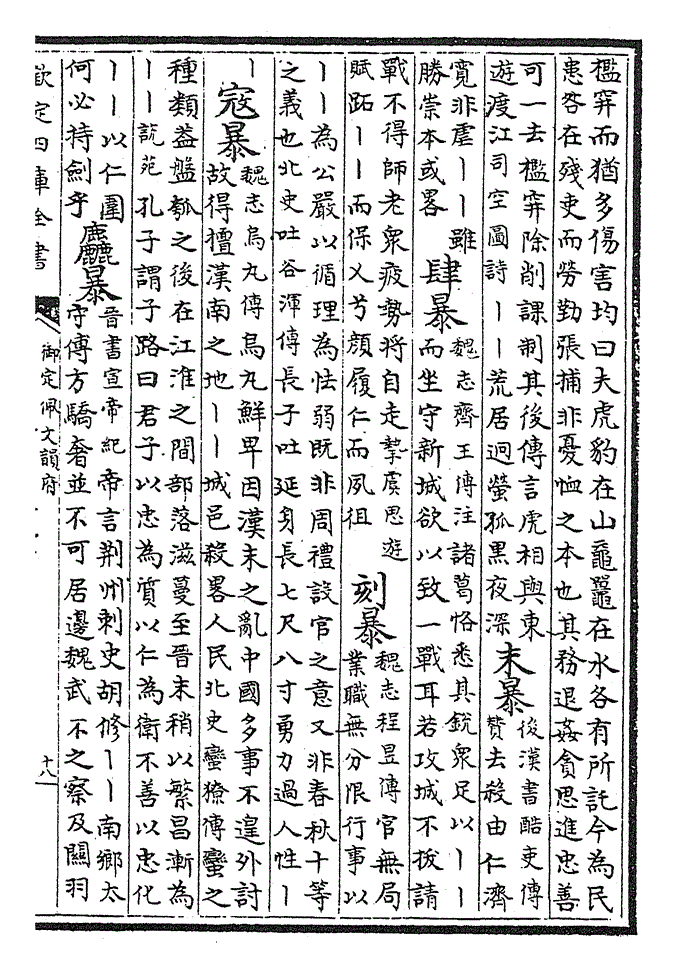 檻穽而猶多傷害均曰夫虎豹在山黿鼉在水各有所託今為民
患咎在殘吏而勞勤張捕非憂恤之本也其務退姦貪思進忠善
可一去檻穽除削課制其後傳言虎相與東
遊渡江司空圖詩丨丨荒居迥螢孤黑夜深
末暴
後漢書酷吏傳
贊去殺由仁濟
寛非虐丨丨雖
勝崇本或畧
肆暴
魏志齊王傳注諸葛恪悉其銳衆足以丨丨
而坐守新城欲以致一戰耳若攻城不拔請
戰不得師老衆疲勢將自走摯虞思遊
賦跖丨丨而保乂兮顔履仁而夙徂
刻暴
魏志程昱傳官無局
業職無分限行事以
丨丨為公嚴以循理為怯弱既非周禮設官之意又非春秋十等
之義也北史吐谷渾傳長子吐延身長七尺八寸勇力過人性丨
丨
寇暴
魏志烏丸傳烏丸鮮卑因漢末之亂中國多事不遑外討
故得擅漢南之地丨丨城邑殺畧人民北史蠻獠傳蠻之
種類葢盤瓠之後在江淮之間部落滋蔓至晉末稍以繁昌漸為
丨丨說苑孔子謂子路曰君子以忠為質以仁為衛不善以忠化
丨丨以仁圍
何必持劍乎
麤暴
晉書宣帝紀帝言荆州刺史胡修丨丨南鄉太
守傅方驕奢並不可居邊魏武不之察及關羽
欽定四庫全書
御定佩文韻府
十八